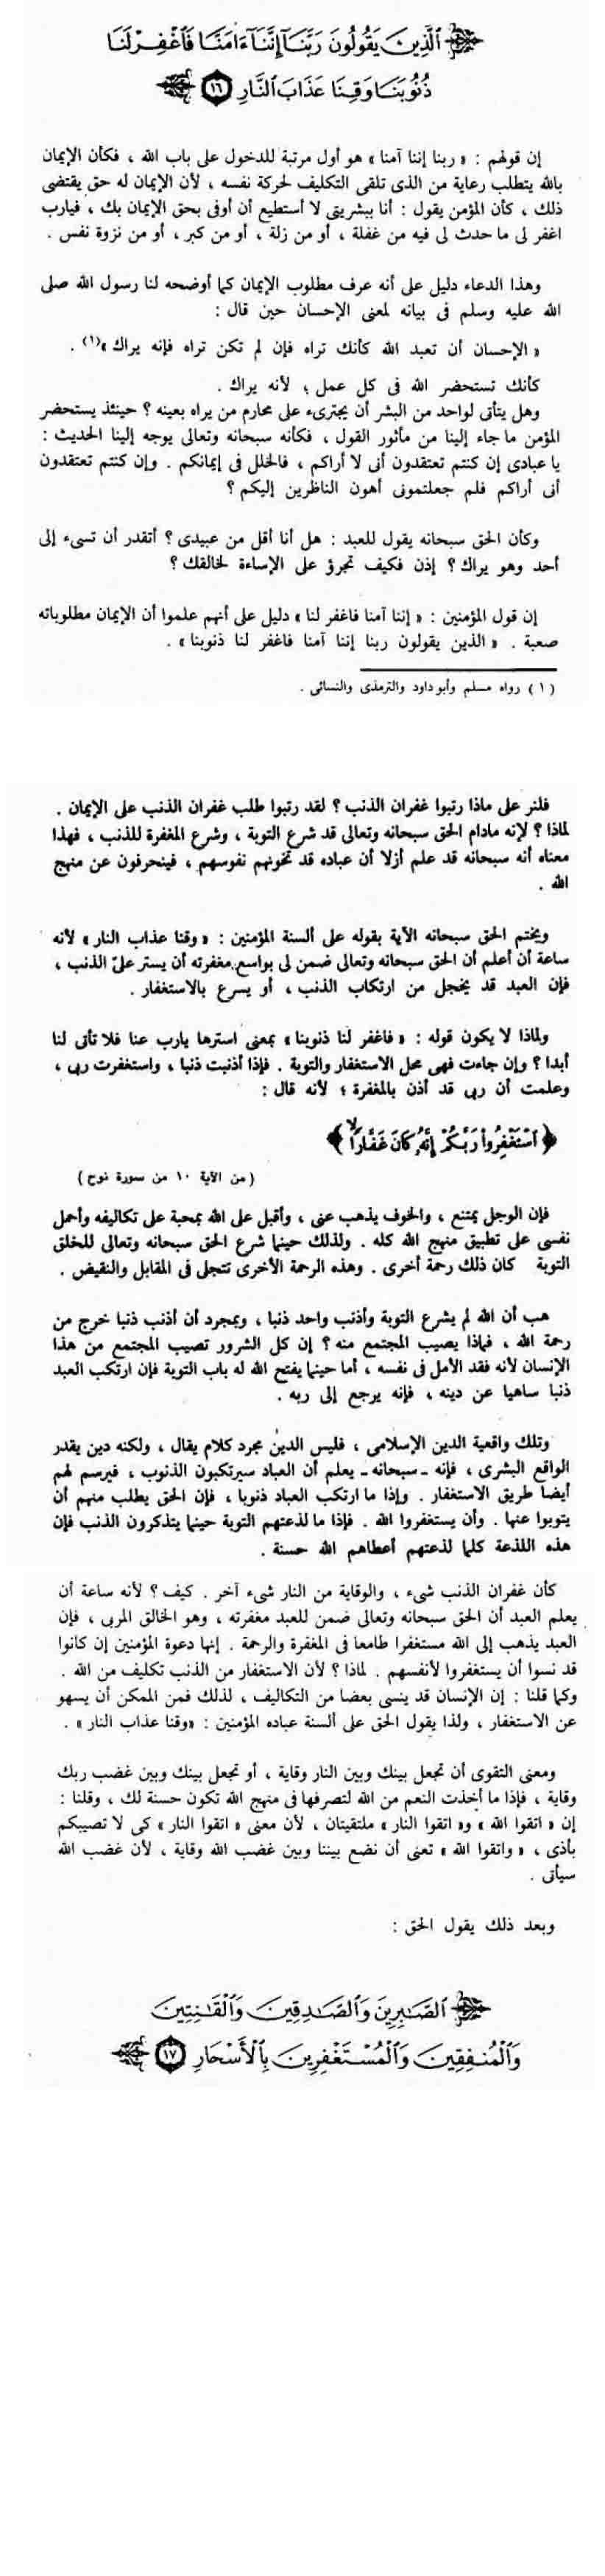 ٱلَّذِينَ يَقُولُونَ رَبَّنَآ إِنَّنَآ ءَامَنَّا فَٱغْفِرْ لَنَا
ذُنُوبَنَا وَقِنَا عَذَابَ ٱلنَّارِ ١٦
إن قولهم : « ربنا إننا آمنا » هو أول مرتبة للدخول على باب الله ، فكأن الإيمان
بالله يتطلب رعاية من الذى تلقى التكليف لحركة نفسه ، لأن الإيمان له حق يقتضى
ذلك ، كأن المؤمن يقول : أنا ببشريتى لا أستطيع أن أوفى بحق الإيمان بك ، فيارب
اغفر لى ما حدث لى فيه من غفلة ، أو من زلة ، أو من كبر ، أو من نزوة نفس .
وهذا الدعاء دليل على أنه عرف مطلوب الإيمان كما أوضحه لنا رسول الله صلى
الله عليه وسلم فى بيانه لمعنى الإحسان حين قال :
« الإحسان أن تعبد الله كأنك تراه فإن لم تكن تراه فإنه يراك »(١) .
كأنك تستحضر الله فى كل عمل ؛ لأنه يراك .
وهل يتأتى لواحد من البشر أن يجترىء على محارم من يراه بعينه ؟ حينئذ يستحضر
المؤمن ما جاء إلينا من مأثور القول ، فكأنه سبحانه وتعالى يوجه إلينا الحديث :
يا عبادى إن كنتم تعتقدون أنى لا أراكم ، فالخلل فى إيمانكم . وإن كنتم تعتقدون
أنى أراكم فلم جعلتمونى أهون الناظرين إليكم ؟
وكأن الحق سبحانه يقول للعبد : هل أنا أقل من عبيدى ؟ أتقدر أن تسىء إلى
أحد وهو يراك ؟ إذن فكيف تجرؤ على الإساءة لخالقك ؟
إن قول المؤمنين : « إننا آمنا فاغفر لنا » دليل على أنهم علموا أن الإيمان مطلوباته
صعبة . « الذين يقولون ربنا إننا آمنا فاغفر لنا ذنوبنا » .
( ١ ) رواه مسلم وأبو داود والترمذى والنسائى .
فلنر على ماذا رتبوا غفران الذنب ؟ لقد رتبوا طلب غفران الذنب على الإيمان .
لماذا ؟ لإنه مادام الحق سبحانه وتعالى قد شرع التوبة ، وشرع المغفرة للذنب ، فهذا
معناه أنه سبحانه قد علم أزلا أن عباده قد تخونهم نفوسهم ، فينحرفون عن منهج
الله .
ويختم الحق سبحانه الآية بقوله على ألسنة المؤمنين : « وقنا عذاب النار » لأنه
ساعة أن أعلم أن الحق سبحانه وتعالى ضمن لى بواسع مغفرته أن يستر علىّ الذنب ،
فإن العبد قد يخجل من ارتكاب الذنب ، أو يسرع بالاستغفار .
ولماذا لا يكون قوله : « فاغفر لنا ذنوبنا » بمعنى استرها يارب عنا فلا تأتى لنا
أبدا ؟ وإن جاءت فهى محل الاستغفار والتوبة . فإذا أذنبت ذنبا ، واستغفرت ربى ،
وعلمت أن ربى قد أذن بالمغفرة ؛ لأنه قال :
﴿ ٱسْتَغْفِرُواْ رَبَّكُمْ إِنَّهُۥ كَانَ غَفَّارًا ﴾
( من الآية ١٠ من سورة نوح )
فإن الوجل يمتنع ، والخوف يذهب عنى ، وأقبل على الله بمحبة على تكاليفه وأحمل
نفسى على تطبيق منهج الله كله . ولذلك حينما شرع الحق سبحانه وتعالى للخلق
التوبة كان ذلك رحمة أخرى . وهذه الرحمة الأخرى تتجلى فى المقابل والنقيض .
هب أن الله لم يشرع التوبة وأذنب واحد ذنبا ، وبمجرد أن أذنب ذنبا خرج من
رحمة الله ، فماذا يصيب المجتمع منه ؟ إن كل الشرور تصيب المجتمع من هذا
الإنسان لأنه فقد الأمل فى نفسه ، أما حينما يفتح الله له باب التوبة فإن ارتكب العبد
ذنبا ساهيا عن دينه ، فإنه يرجع إلى ربه .
وتلك واقعية الدين الإسلامى ، فليس الدين مجرد كلام يقال ، ولكنه دين يقدر
الواقع البشرى ، فإنه - سبحانه - يعلم أن العباد سيرتكبون الذنوب ، فيرسم لهم
أيضا طريق الاستغفار . وإذا ما ارتكب العباد ذنوبا ، فإن الحق يطلب منهم أن
يتوبوا عنها . وأن يستغفروا الله . فإذا ما لذعتهم التوبة حينما يتذكرون الذنب فإن
هذه اللذعة كلما لذعتهم أعطاهم الله حسنة .
كأن غفران الذنب شىء ، والوقاية من النار شىء آخر . كيف ؟ لأنه ساعة أن
يعلم العبد أن الحق سبحانه وتعالى ضمن للعبد مغفرته ، وهو الخالق المربى ، فإن
العبد يذهب إلى الله مستغفرا طامعا فى المغفرة والرحمة . إنها دعوة المؤمنين إن كانوا
قد نسوا أن يستغفروا لأنفسهم . لماذا ؟ لأن الاستغفار من الذنب تكليف من الله .
وكما قلنا : إن الإنسان قد ينسى بعضا من التكاليف ، لذلك فمن الممكن أن يسهو
عن الاستغفار ، ولذا يقول الحق على ألسنة عباده المؤمنين : «وقنا عذاب النار» .
ومعنى التقوى أن تجعل بينك وبين النار وقاية ، أو تجعل بينك وبين غضب ربك
وقاية ، فإذا ما أخذت النعم من الله لتصرفها فى منهج الله تكون حسنة لك ، وقلنا :
إن « اتقوا الله » و« اتقوا النار » ملتقيتان ، لأن معنى « اتقوا النار » كى لا تصيبكم
بأذى ، « واتقوا الله » تعنى أن نضع بيننا وبين غضب الله وقاية ، لأن غضب الله
سيأتى .
وبعد ذلك يقول الحق :
ٱلصَّٰبِرِينَ وَٱلصَّٰدِقِينَ وَٱلْقَٰنِتِينَ
وَٱلْمُنفِقِينَ وَٱلْمُسْتَغْفِرِينَ بِٱلْأَسْحَارِ ١٧